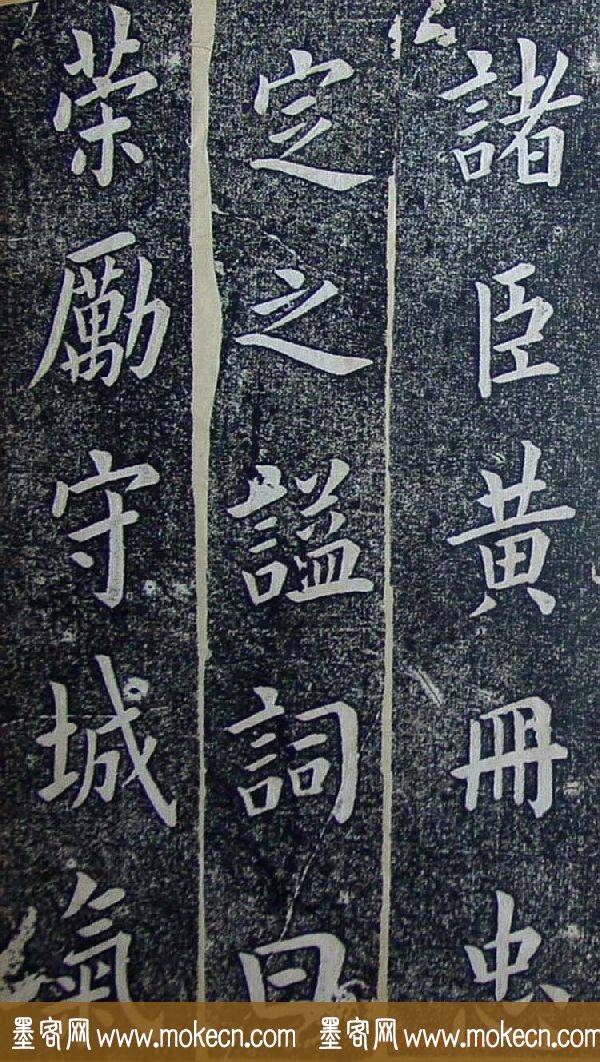 諸臣黄冊忠
定之謚詞曰
荣勵守城氣
墨客网 www.mokecn.com 墨客网 www.mokecn.com